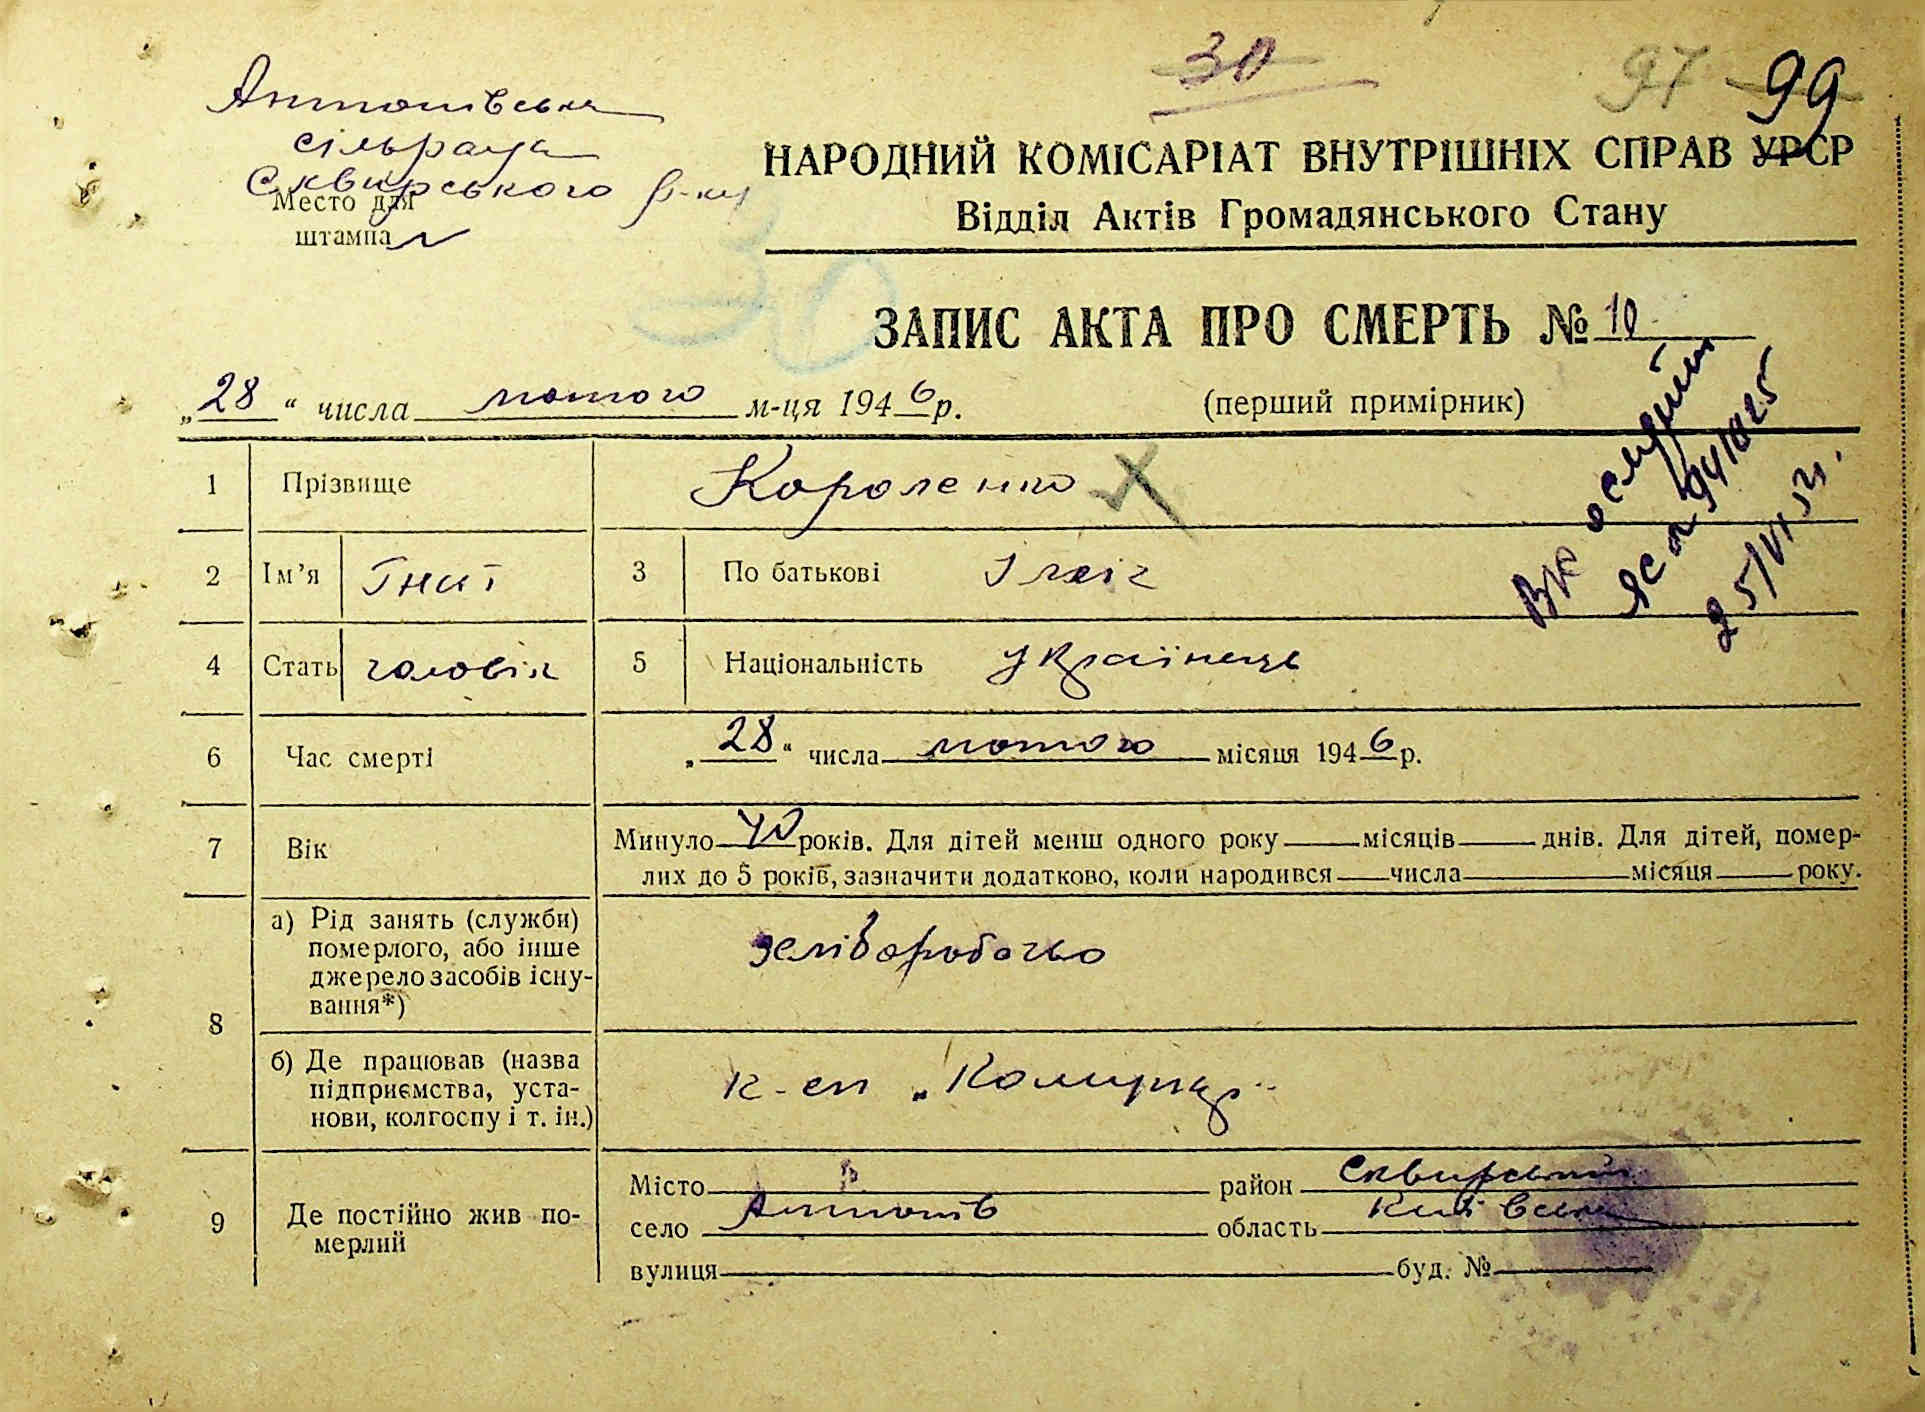 30
97 99
Антонівська
сільрада
Сквирського р-ну
Место для
штампа
НАРОДНИЙ КОМІСАРІАТ ВНУТРІШНІХ СПРАВ УРСР
Відділ Актів Громадянського Стану
30
ЗАПИС АКТА ПРО СМЕРТЬ № 10
„28“ числа лютого м-ця 1946 р.
(перший примірник)
1 Прізвище Короленко
2 Ім’я Гнат 3 По батькові
4 Стать чоловік 5 Національність українець
6 Час смерті „28“ числа лютого місяця 1946 р.
7 Вік Минуло 40 років. Для дітей менш одного року місяців днів. Для дітей, помер-
лих до 5 років, зазначити додатково, коли народився числа місяця року.
8
а) Рід занять (служби)
померлого, або інше
джерело засобів існу-
вання*)
б) Де працював (назва
підприємства, уста-
нови, колгоспу і т. ін.)
к-сп
9 Де постійно жив по-
мерлий
Місто район Сквирський
село Антонів область Київська
вулиця буд. №